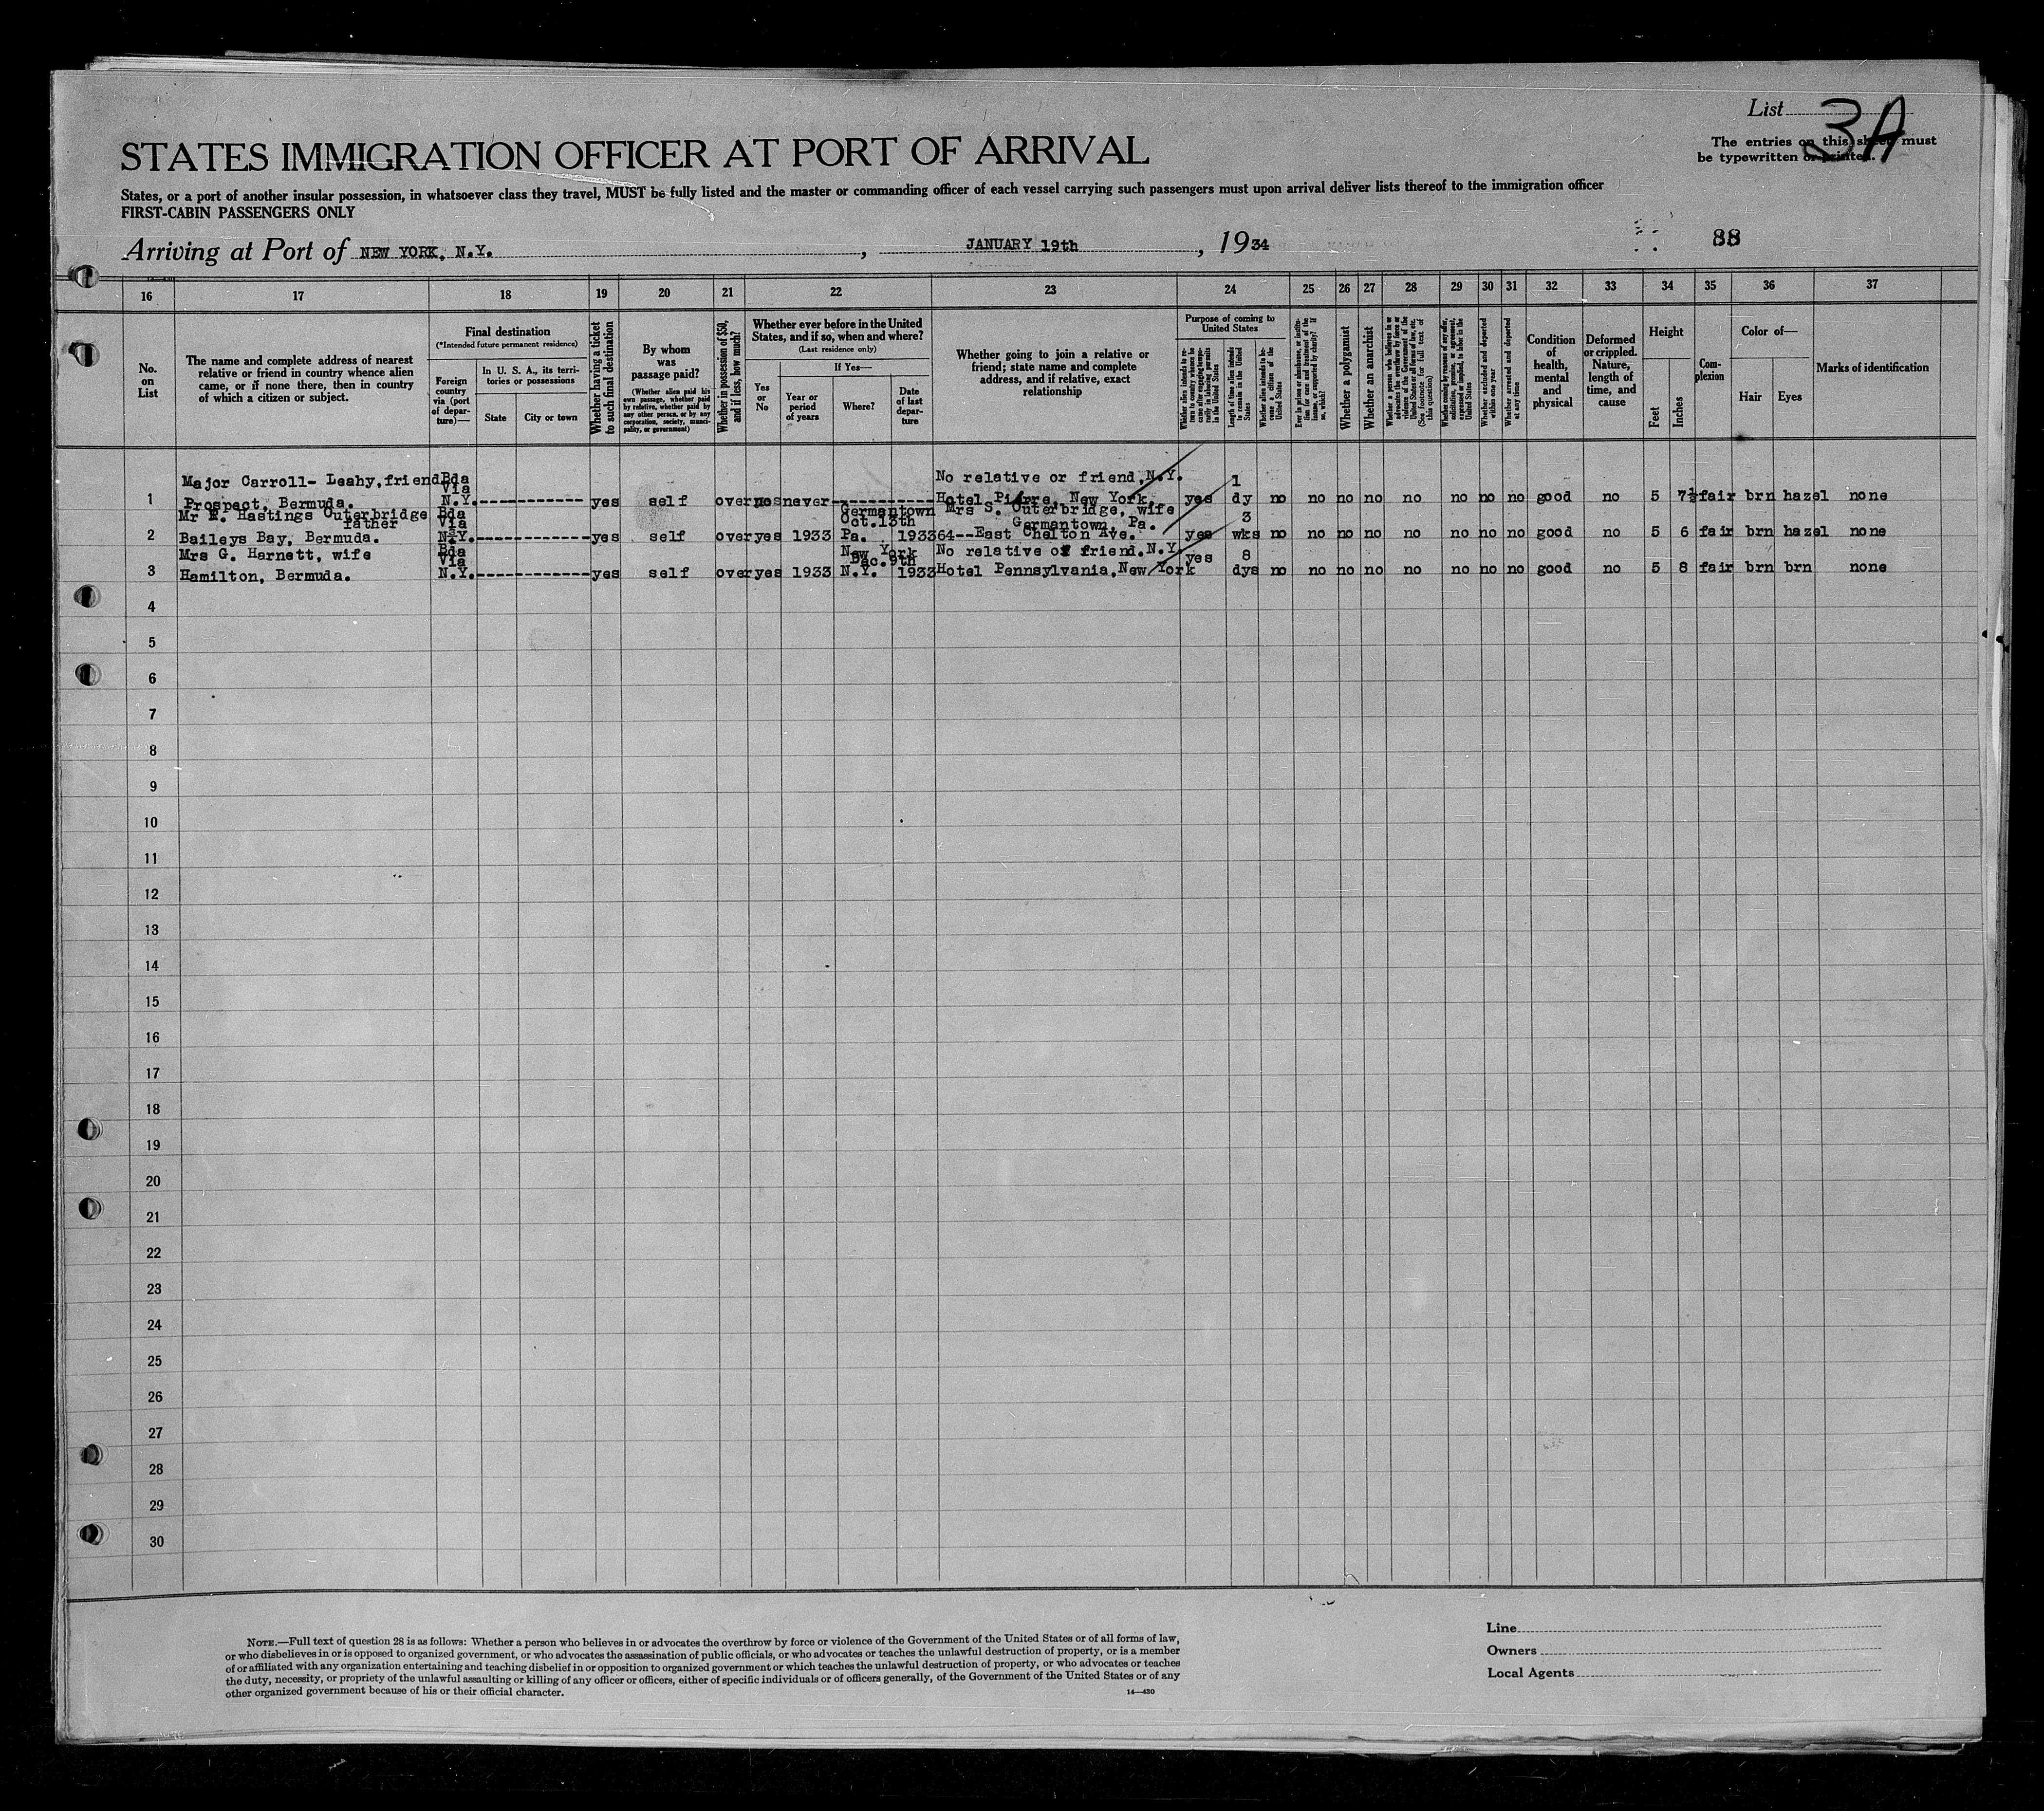 List 3A
The entries on this sheet must
be typewritten or printed.
STATES IMMIGRATION OFFICER AT PORT OF ARRIVAL
States, or a port of another insular possession, in whatsoever class they travel, MUST be fully listed and the master or commanding officer of each vessel carrying such passengers must upon arrival deliver lists thereof to the immigration officer
FIRST-CABIN PASSENGERS ONLY
Arriving at Port of NEW YORK, N.Y. , JANUARY 19th , 1934
88
16 17 18 19 20 21 22 23 24 25 26 27 28 29 30 31 32 33 34 35 36 37
No.
on
List
The name and complete address of nearest
relative or friend in country whence alien
came, or if none there, then in country
of which a citizen or subject.
Final destination
(*Intended future permanent residence)
Foreign
country
via (port
of depar-
ture)—
In U. S. A., its terri-
tories or possessions
State
City or town
Whether having a ticket
to such final destination
By whom
was
passage paid?
(Whether alien paid his
own passage, whether paid
by relative, whether paid by
any other person, or by any
corporation, society, munici-
pality, or government)
Whether in possession of $50,
and if less, how much?
Whether ever before in the United
States, and if so, when and where?
(Last residence only)
Yes
or
No
If Yes—
Year or
period
of years
Where?
Date
of last
depar-
ture
Whether going to join a relative or
friend; state name and complete
address, and if relative, exact
relationship
Purpose of coming to
United States
Length of time alien intends
to remain in the United
States
Whether alien intends to be-
come a citizen of the
United States
Whether a polygamist
Whether an anarchist
Whether excluded and deported
within one year
Whether arrested and deported
at any time
Condition
of
health,
mental
and
physical
Deformed
or crippled.
Nature,
length of
time, and
cause
Height
Feet
Inches
Com-
plexion
Color of—
Hair
Eyes
Marks of identification
Major Carroll- Leahy, friend Bda Via No relative or friend, N.Y. 1
1 Prospect, Bermuda. N.Y. yes self over no never Hotel Pierre, New York. yes dy no no no no no no no no good no 5 7½ fair brn hazel none
Hastings Outerbridge father Bda Via Germantown Oct.13th Mrs S. Outerbridge, wife Germantown, Pa. 3
2 Baileys Bay, Bermuda. N.Y. yes self over yes 1933 Pa. 1933 64--East Chelton Ave. yes wks no no no no no no no no good no 5 6 fair brn hazel none
Mrs G. Harnett, wife Bda Via New York Dec.9th No relative or friend. N.Y. yes 8
3 Hamilton, Bermuda. N.Y. yes self over yes 1933 N.Y. 1933 Hotel Pennsylvania, New York dys no no no no no no no no good no 5 8 fair brn brn none
4
5
6
7
8
9
10
11
12
13
14
15
16
17
18
19
20
21
22
23
24
25
26
27
28
29
30
NOTE.—Full text of question 28 is as follows: Whether a person who believes in or advocates the overthrow by force or violence of the Government of the United States or of all forms of law,
or who disbelieves in or is opposed to organized government, or who advocates the assassination of public officials, or who advocates or teaches the unlawful destruction of property, or is a member
of or affiliated with any organization entertaining and teaching disbelief in or opposition to organized government or which teaches the unlawful destruction of property, or who advocates or teaches
the duty, necessity, or propriety of the unlawful assaulting or killing of any officer or officers, either of specific individuals or of officers generally, of the Government of the United States or of any
other organized government because of his or their official character.
14—430
Line
Owners
Local Agents